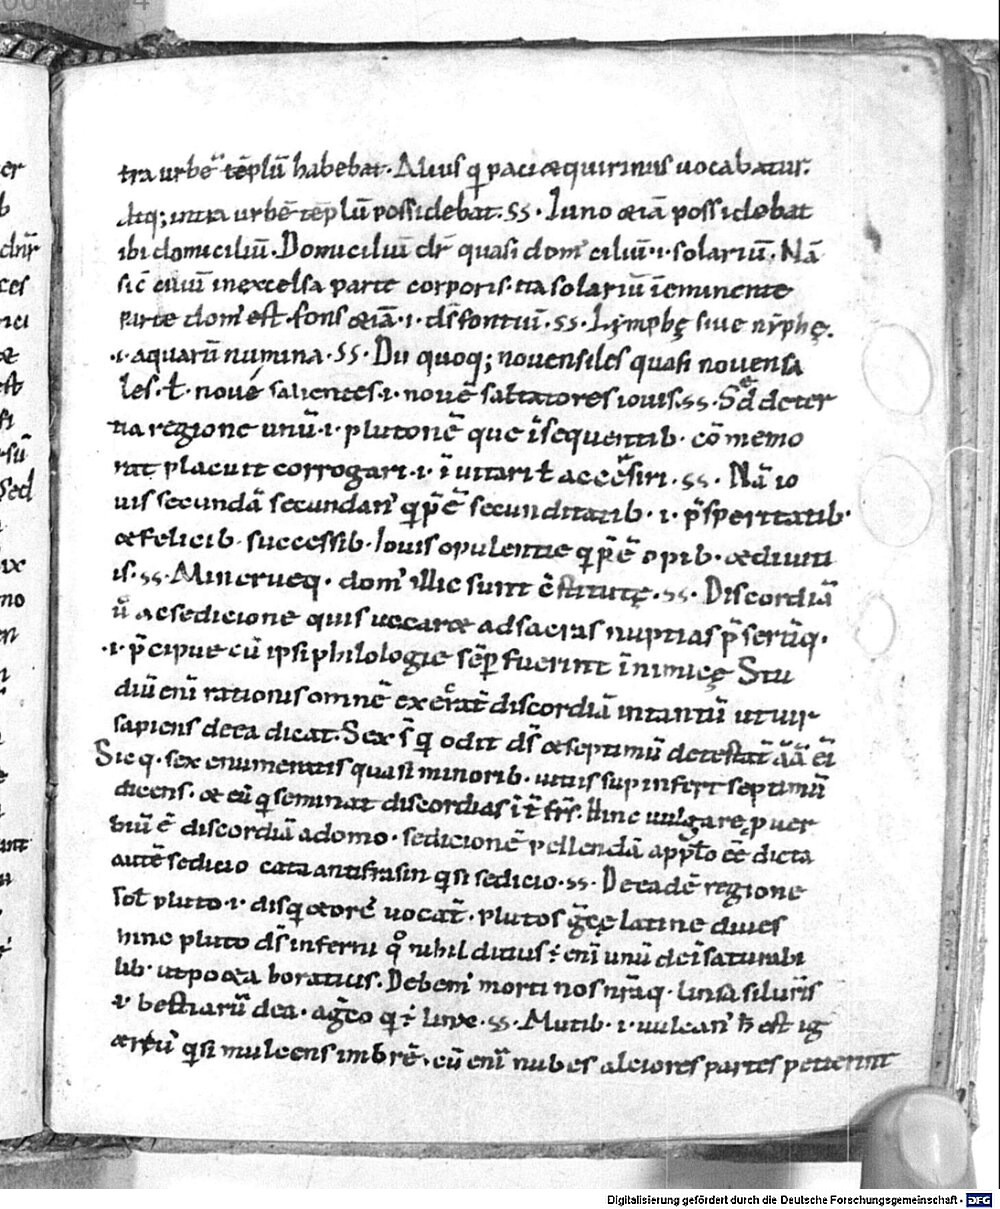 tra urbē tēplū habebat. Alius q̄ paci & quirinus uocabatur.
Itq; intra urbē tēplū possidebat. ss. Iuno & iā possidebat
ibi domiciliū. Domiciliū dr̄ quasi dom' ciliū .i. solariū. Nā
sic̄ ciliū in excelsa parte corporis. ita solariū ī eminente
parte dom' est. fons & iā .i. ds̄ fontiū. ss. Lymphę siue nȳphę.
.i. aquarū numina. ss. Dii quoq; nouensiles quasi nouensa
les. ł. nouē salientes .i. nouē saltatores iouis. ss. Sed de ter
tia regione unū .i. plutonē que īsequentib. cōmemo
rat placuit corrogari .i. īuitari ł accersiri. ss. Nā io
uis secundā secundan' q̄ p̄ ē secunditatib. .i. p̄speritatib.
& felicib. successib. Iouis opulentie q̄ p̄ ē opib. & diuiti
is. ss. Mineruęq. dom' illic sunt c̄stitutę. ss. Discordiā
ū ac sedicione quis uocar& ad sacras nuptias p̄sertīq.
.i. p̄cipue cū ipsi philologie sēp fuerint īnimicę Stu
diū enī rationis omnē exercat̄ discordiā in tantū ut uir
sapiens de ea dicat. Sex s̄ q̄ odit ds̄ & septimū detestat̄ aīa eī
Sicq. sex enumeratis quasi minorib. uitiis sup infert septimū
dicens. & eū q̄ seminat discordias īt̄ fr̄s. Hinc uulgare puer
biū ē discordiā a domo. sedicionē pellendā
autē sedicio cata antifrasin q̄si sedicio. ss. De eadē regione
soł pluto .i. dis q̄ & orē uocat̄. plutos gr̄cę latine diues
hinc pluto ds̄ inferni q̊ nihil ditius ÷ enī unū dei īsaturabi
lib. ut po&a boratius. Debem' morti nos nr̄aq.
bestiarū dea. ss. Mulcib. .i. uulcan' h̄ est ig
q̄si mulcens imbrē. cū enī nubes alciores partes petierint
Digitalisierung gefördert durch die Deutsche Forschungsgemeinschaft - DFG